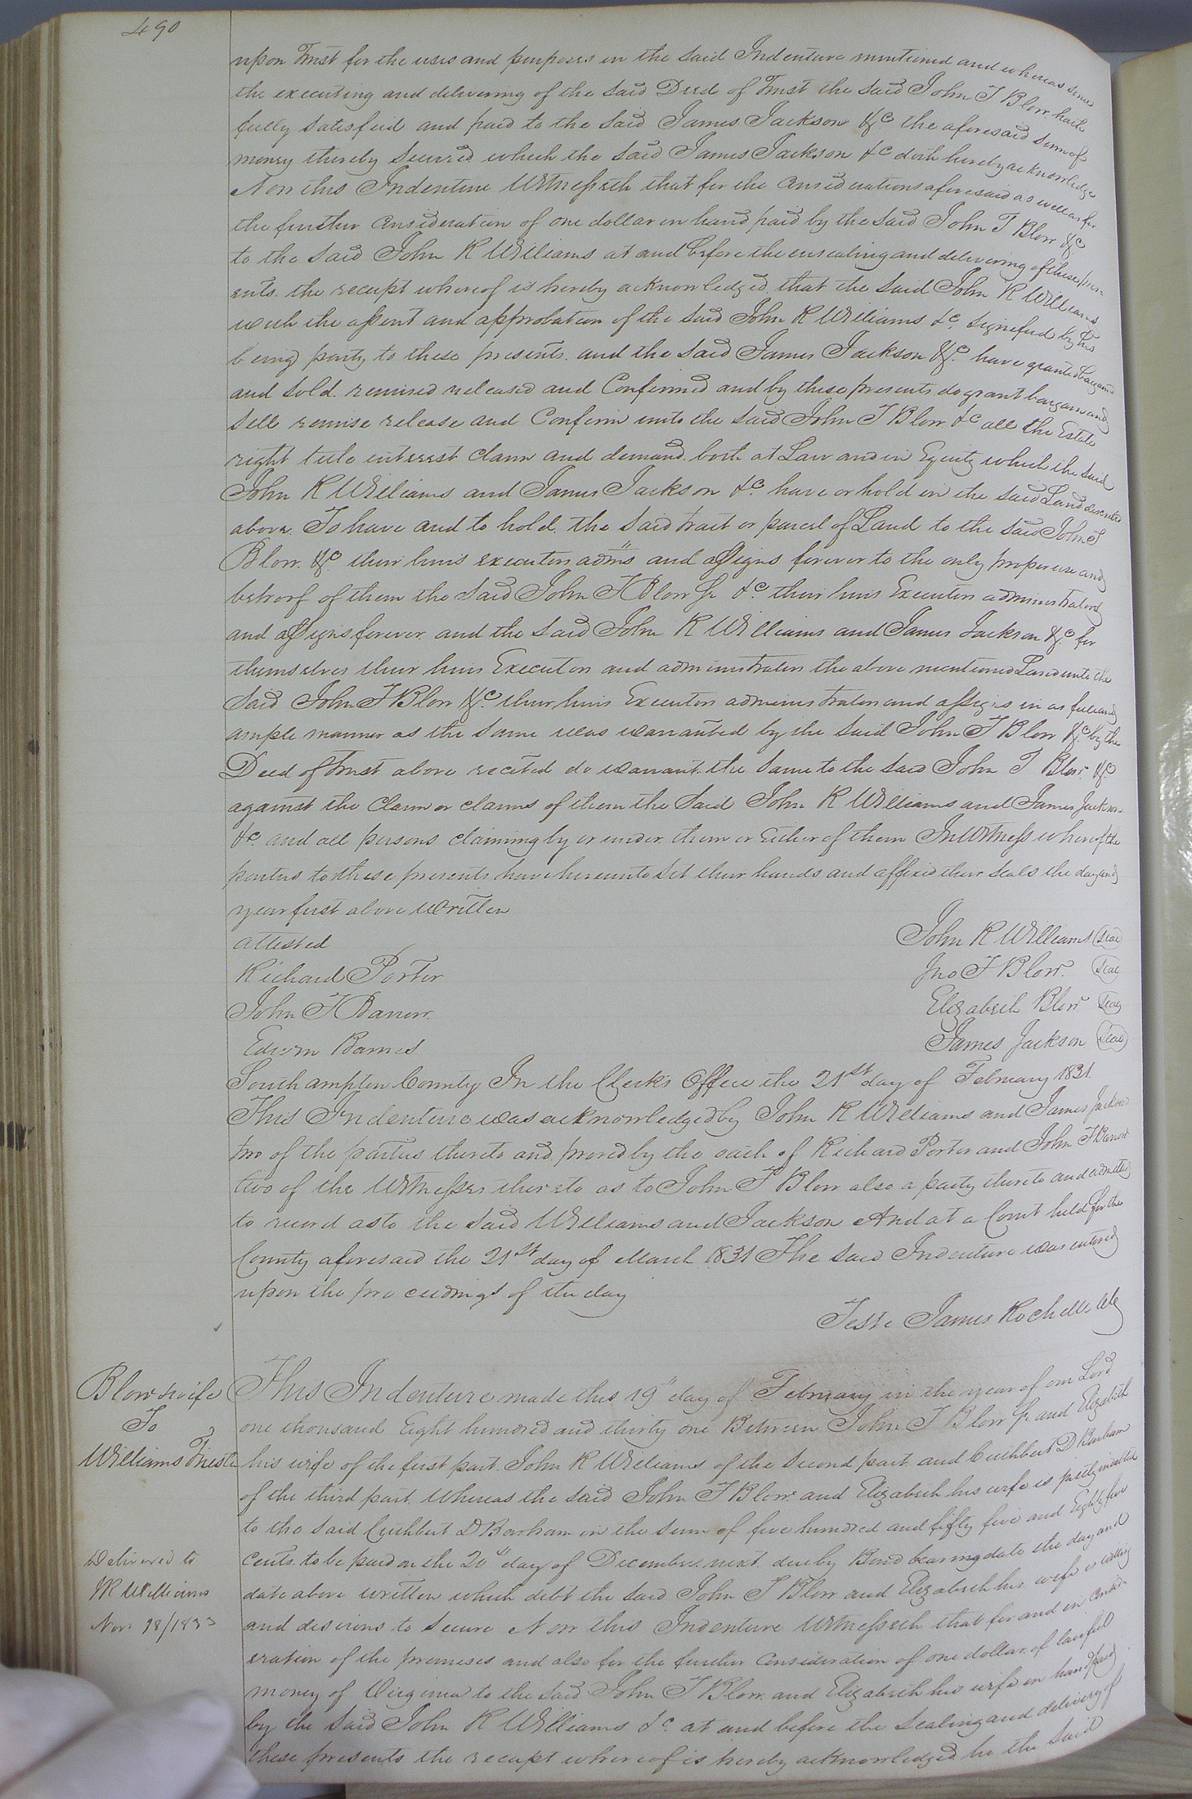 490
upon Trust for the uses and purposes in the said Indenture mentioned and whereas since
the executing and delivering of the said Deed of Trust the said John T Blow hath
fully satisfied and paid to the said James Jackson &c the aforesaid sum of
money thereby secured which the said James Jackson &c doth hereby acknowledge
Now this Indenture Witnesseth that for the Considerations aforesaid as well as for
the further Consideration of one dollar in hand paid by the said John T Blow &c
to the said John R Williams at and before the ensealing and delivering of these pres
ents the receipt whereof is hereby acknowledged, that the said John R Williams
with the assent and approbation of the said John R Williams &c signified by his
being party to these presents and the said James Jackson &c have granted bargained
and sold remised released and Confirmed and by these presents do grant bargain and
sell remise release and Confirm unto the said John T Blow &c all the Estate
right title interest claim and demand both at Law and in Equity which the said
John R Williams and James Jackson &c have or hold in the said Land described
above To have and to hold the said tract or parcel of Land to the said John T
Blow &c their heirs executors adms and assigns forever to the only proper use and
behoof of them the said John T Blow Jr &c their heirs Executors administrators
and assigns forever and the said John R Williams and James Jackson &c for
themselves their heirs Executors and administrators the above mentioned Land unto the
said John T Blow &c their heirs Executors administrators and assigns in as full and
ample manner as the same was warranted by the said John T Blow &c by the
Deed of Trust above recited do warrant the same to the said John T Blow &c
against the claim or claims of them the said John R Williams and James Jackson
&c and all persons claiming by or under them or Either of them In Witness whereof the
parties to these presents have hereunto set their hands and affixed their seals the day and
year first above written
attested
John R Williams (Seal)
Richard Porter
Jno T Blow (Seal)
John T Barrow
Elizabeth Blow (Seal)
Edwin Barnes
James Jackson (Seal)
Southampton County In the Clerk's Office the 21st day of February 1831
This Indenture was acknowledged by John R Williams and James Jackson
two of the parties thereto and proved by the oath of Richard Porter and John T Barrow
two of the Witnesses thereto as to John T Blow also a party thereto and admitted
to record as to the said Williams and Jackson And at a Court held for the
County aforesaid the 21st day of March 1831 The said Indenture was entered
upon the proceedings of the day
Teste James Rochelle Clk
Blow & wife
To
Williams Trustee
This Indenture made this 19" day of February in the year of our Lord
one thousand Eight hundred and thirty one Between John T Blow Jr and Elizabeth
his wife of the first part John R Williams of the second part and Cuthbert D Barham
of the third part Whereas the said John T Blow and Elizabeth his wife is justly indebted
to the said Cuthbert D Barham in the sum of five hundred and fifty five and Eighty five
cents to be paid on the 20th day of December next due by Bond bearing date the day and
date above written which debt the said John T Blow and Elizabeth his wife is willing
and desirous to secure Now this Indenture Witnesseth that for and in Consid
eration of the premises and also for the further Consideration of one dollar of lawful
money of Virginia to the said John T Blow and Elizabeth his wife in hand paid
by the said John R Williams &c at and before the sealing and delivery of
these presents the receipt whereof is hereby acknowledged he the said
Delivered to
JR Williams
Nov. 28/1833